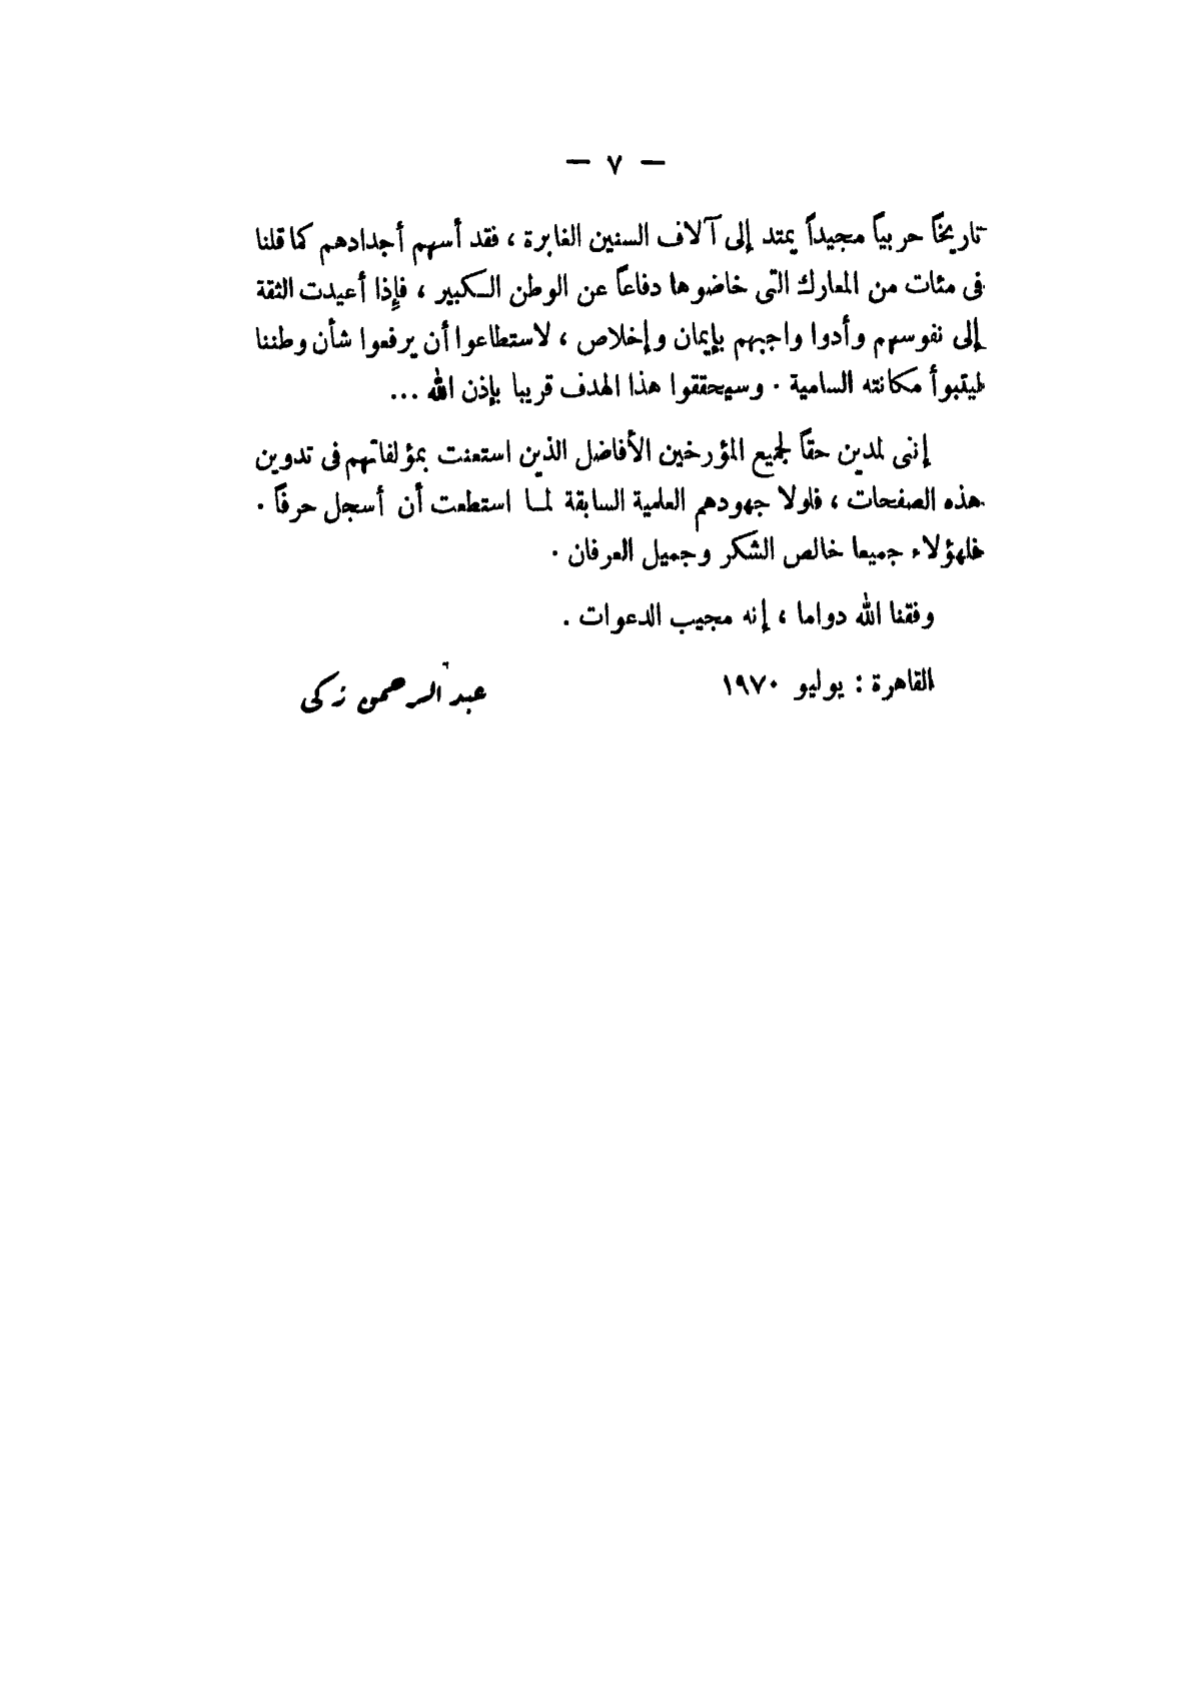 — ٧ —
تاريخاً حربياً مجيداً يمتد إلى آلاف السنين الغابرة ، فقد أسهم أجدادهم كما قلنا
فى مئات من المعارك التى خاضوها دفاعاً عن الوطن الكبير ، فإذا أعيدت الثقة
إلى نفوسهم وأدوا واجبهم بإيمان وإخلاص ، لاستطاعوا أن يرفعوا شأن وطننا
ليتبوأ مكانته السامية . وسيحققوا هذا الهدف قريبا بإذن الله ...
إننى لمدين حقاً لجميع المؤرخين الأفاضل الذين استعنت بمؤلفاتهم فى تدوين
هذه الصفحات ، فلولا جهودهم العلمية السابقة لما استطعت أن أسجل حرفاً .
فلهؤلاء جميعا خالص الشكر وجميل العرفان .
وفقنا الله دواما ، إنه مجيب الدعوات .
القاهرة : يوليو ١٩٧٠ عبد الرحمن زكى